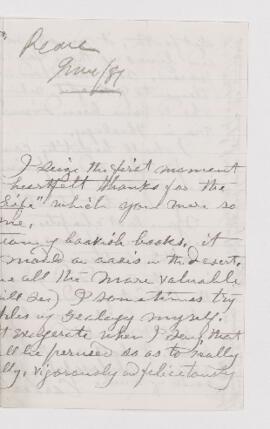 Pearl
June/81
I seize the first moment
heartfelt thanks for the
Life" which you were so
me.
many bookish books, it
an oasis in the desert.
me all the more valuable
I sometimes try
of Geology myself.
exagerate when I say that
be perused so as to really
vigorously and felicitously